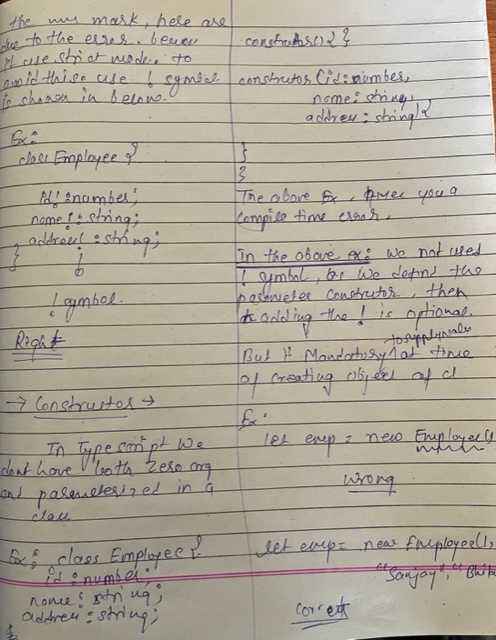 the mark, here are
due to the error. becuse
of use strict mode. to
avoid this use ! symbol
is shown in below.
Ex:
class Employee {
id! : number;
name! : string;
address! : string;
}
! symbol.
Right
→ Constructor →
In Type script we
dont have both zero arg
and parameterized in a
class
Ex: class Employee {
id : number;
name : string;
address : string;
constructor() { }
constructor (id : number,
name : string,
address : string) {
}
}
The above Ex, gives you a
compile time error.
In the above ex: we not used
! symbol, we define the
parameter constructor, then
adding the ! is optional.
to supply values
But it Mandatory at time
of creating object of cl
Ex:
let emp = new Employee()
Wrong
let emp = new Employee(1,
"Sanjay",
correct